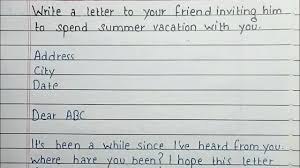 Write a letter to your friend inviting him
to spend summer vacation with you.
Address
City
Date
Dear ABC
It's been a while since I've heard from you.
where have you been? I hope this letter